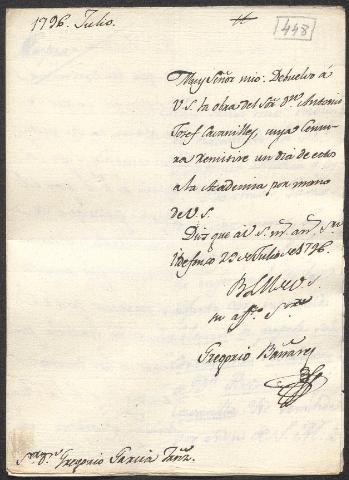 1796. Julio.
448
Muy Señor mio. Debuelvo á
V.S. la obra del Sor. Dn. Antonio
Josef Cavanilles, cuya Censu-
ra remitire un dia de estos
a la Academia por mano
de V.S.
Dios gue a V.S. ms. as. Sn.
Ildefonso 23 de Julio de 1796.
BLM de V.S.
su affo. Sor.
Gregorio Bañares
Sr. Dn. Gregorio Garcia